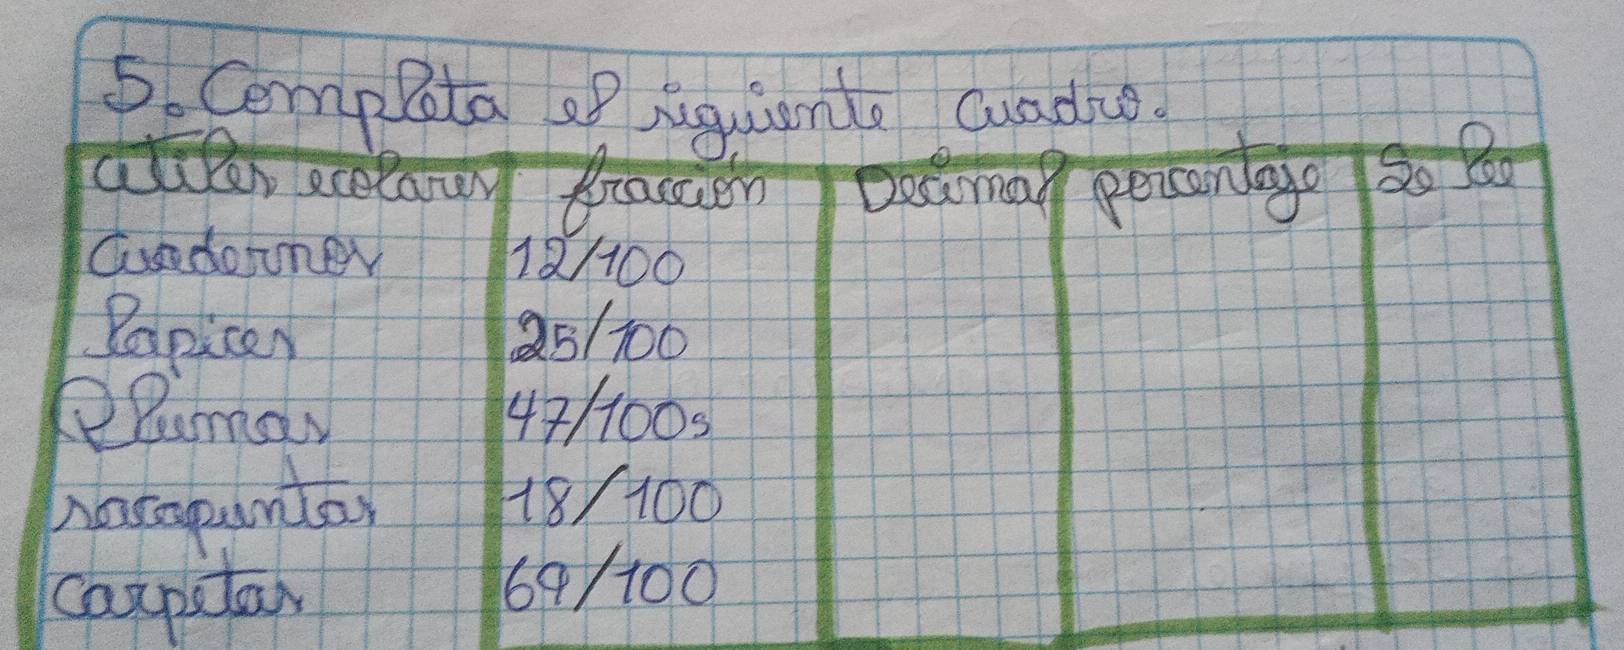 5. Completa el siguiente cuadro.
utiles escolares fracción Decimal porcentaje Se lee
Cuadernos 12/100
lapices 25/100
Plumas 47/100s
sacapuntas 18/100
carpetas 69/100